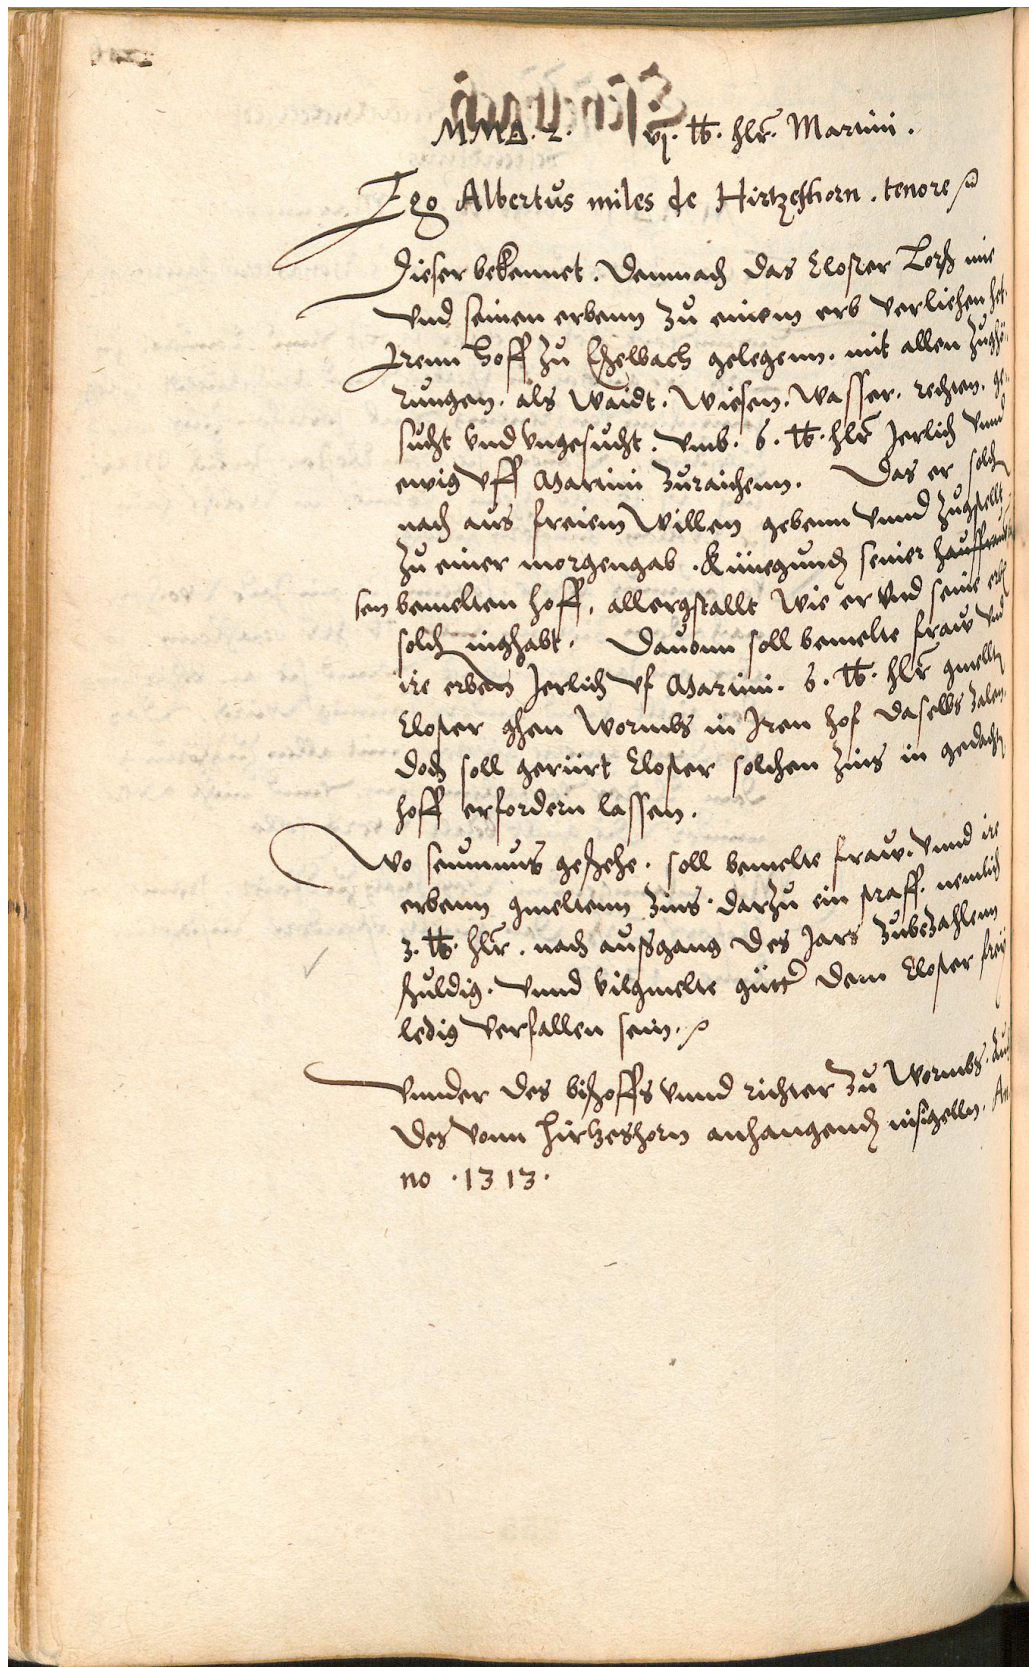 MMΔ. 2. vj. lb. hlr. Martini.
Ego Albertus miles de Hirtzeßhorn. tenore
Dieser bekennet. Demnach das Closter Lorß ime
Vnd seinen erbenn zu einem erb verliehen het
Irenn hoff zu Eschelbach gelegenn. mit allen zughö
rungen. als Waidt. Wiesen. Wasser. rechten. ge
sucht vnd vngesucht. vmb. 6. lb. hlr Jerlich vnnd
ewig vff Martini zuraichenn. Das er solch
nach aus freiem Willen gebenn vnnd zugstellt
zu einer morgengab. Künegund seiner haußfrauen
sen bemelten hoff. allergstallt wie er vnd seine erbe
solch inghabt. Dauonn soll bemelte fraw vnd
ire erben Jerlich vf Martini. 6. lb. hlr gmellt
Closter ghen Wormbs in Iren hof daselbs zalen
doch soll gerürt Closter solchen zins in gedacht
hoff erfordern lassen.
Wo seumnus geschehe. soll bemelte fraw. vnnd ire
erbenn gmeltenn zins. darzu ein straff. nemlich
3. lb. hlr. nach außgang des Jars zubezahlenn
schuldig. vnnd vilgmelte gütter dem Closter frey
ledig verfallen sein.
Vnnder des bischoffs vnnd richter zu Wormbs. auch
des vonn Hirtzeshorn anhangend insigelln. An
no. 1313.